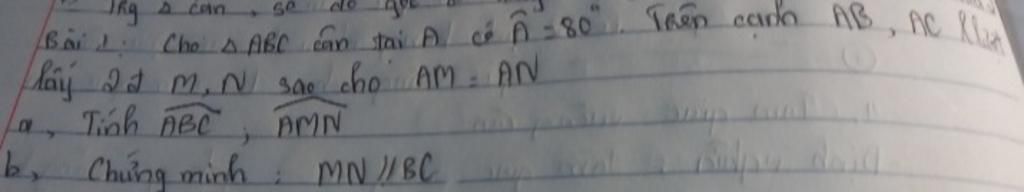 1 kg Δ cân, số đo góc
Bài 1: Cho Δ ABC cân tại A có Â = 80°. Trên cạnh AB, AC lần
lấy 2đ M, N sao cho AM = AN
a, Tính ABC, AMN
b, Chứng minh: MN // BC